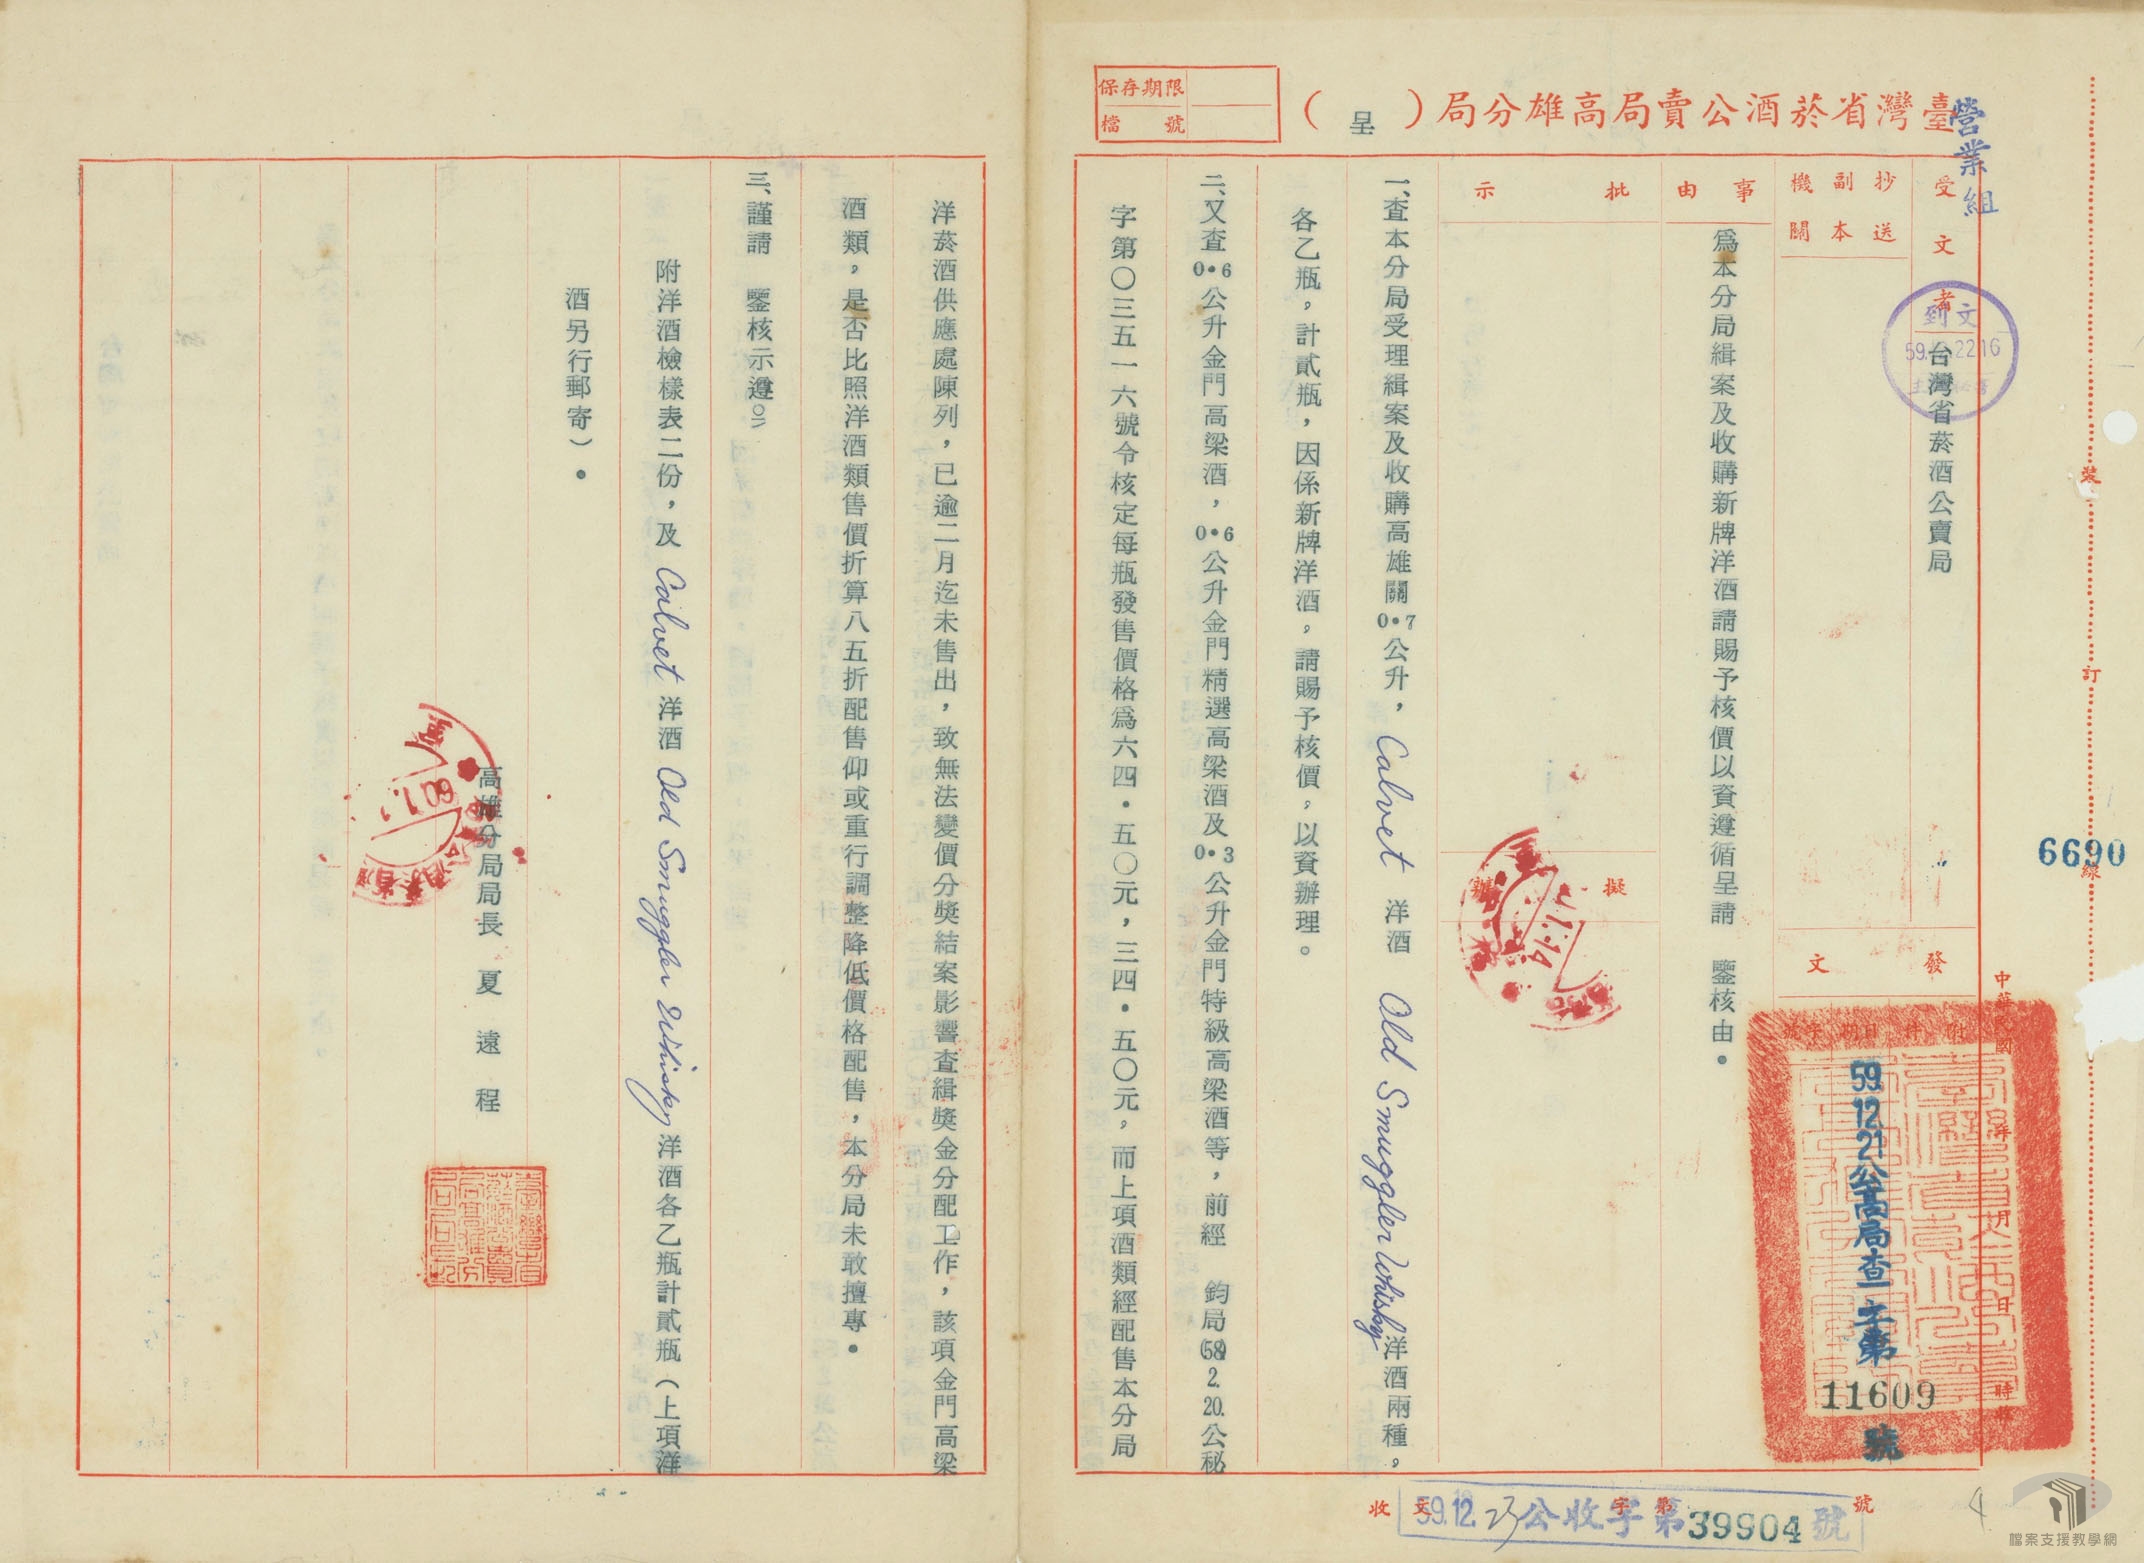 臺灣省菸酒公賣局高雄分局（呈）
保存期限
檔號
營業組
受文者
台灣省菸酒公賣局
到文
抄送
副本
機關
事由
為本分局緝案及收購新牌洋酒請賜予核價以資遵循呈請　鑒核由。
批示
擬辦
發文
附件
日期
字號
中華民國
月
日
時
59.12.21公高局查一字第
11609
號
一、查本分局受理緝案及收購高雄關0.7公升，Calvet 洋酒 Old Smuggler Whisky洋酒兩種，
各乙瓶，計貳瓶，因係新牌洋酒，請賜予核價，以資辦理。
二、又查0.6公升金門高梁酒，0.6公升金門精選高梁酒及0.3公升金門特級高梁酒等，前經　鈞局(58)2.20.公秘
字第〇三五一六號令核定每瓶發售價格為六四．五〇元，三四．五〇元，而上項酒類經配售本分局
洋菸酒供應處陳列，已逾二月迄未售出，致無法變價分獎結案影響查緝獎金分配工作，該項金門高梁
酒類，是否比照洋酒類售價折算八五折配售仰或重行調整降低價格配售，本分局未敢擅專。
三、謹請　鑒核示遵。
附洋酒檢樣表二份，及 Calvet 洋酒 Old Smuggler Whisky 洋酒各乙瓶計貳瓶（上項洋
酒另行郵寄）。
高雄分局局長　夏　遠　程
裝
訂
線
6690
收文 字第 號
59.12.23公收字第39904號
檔案支援教學網